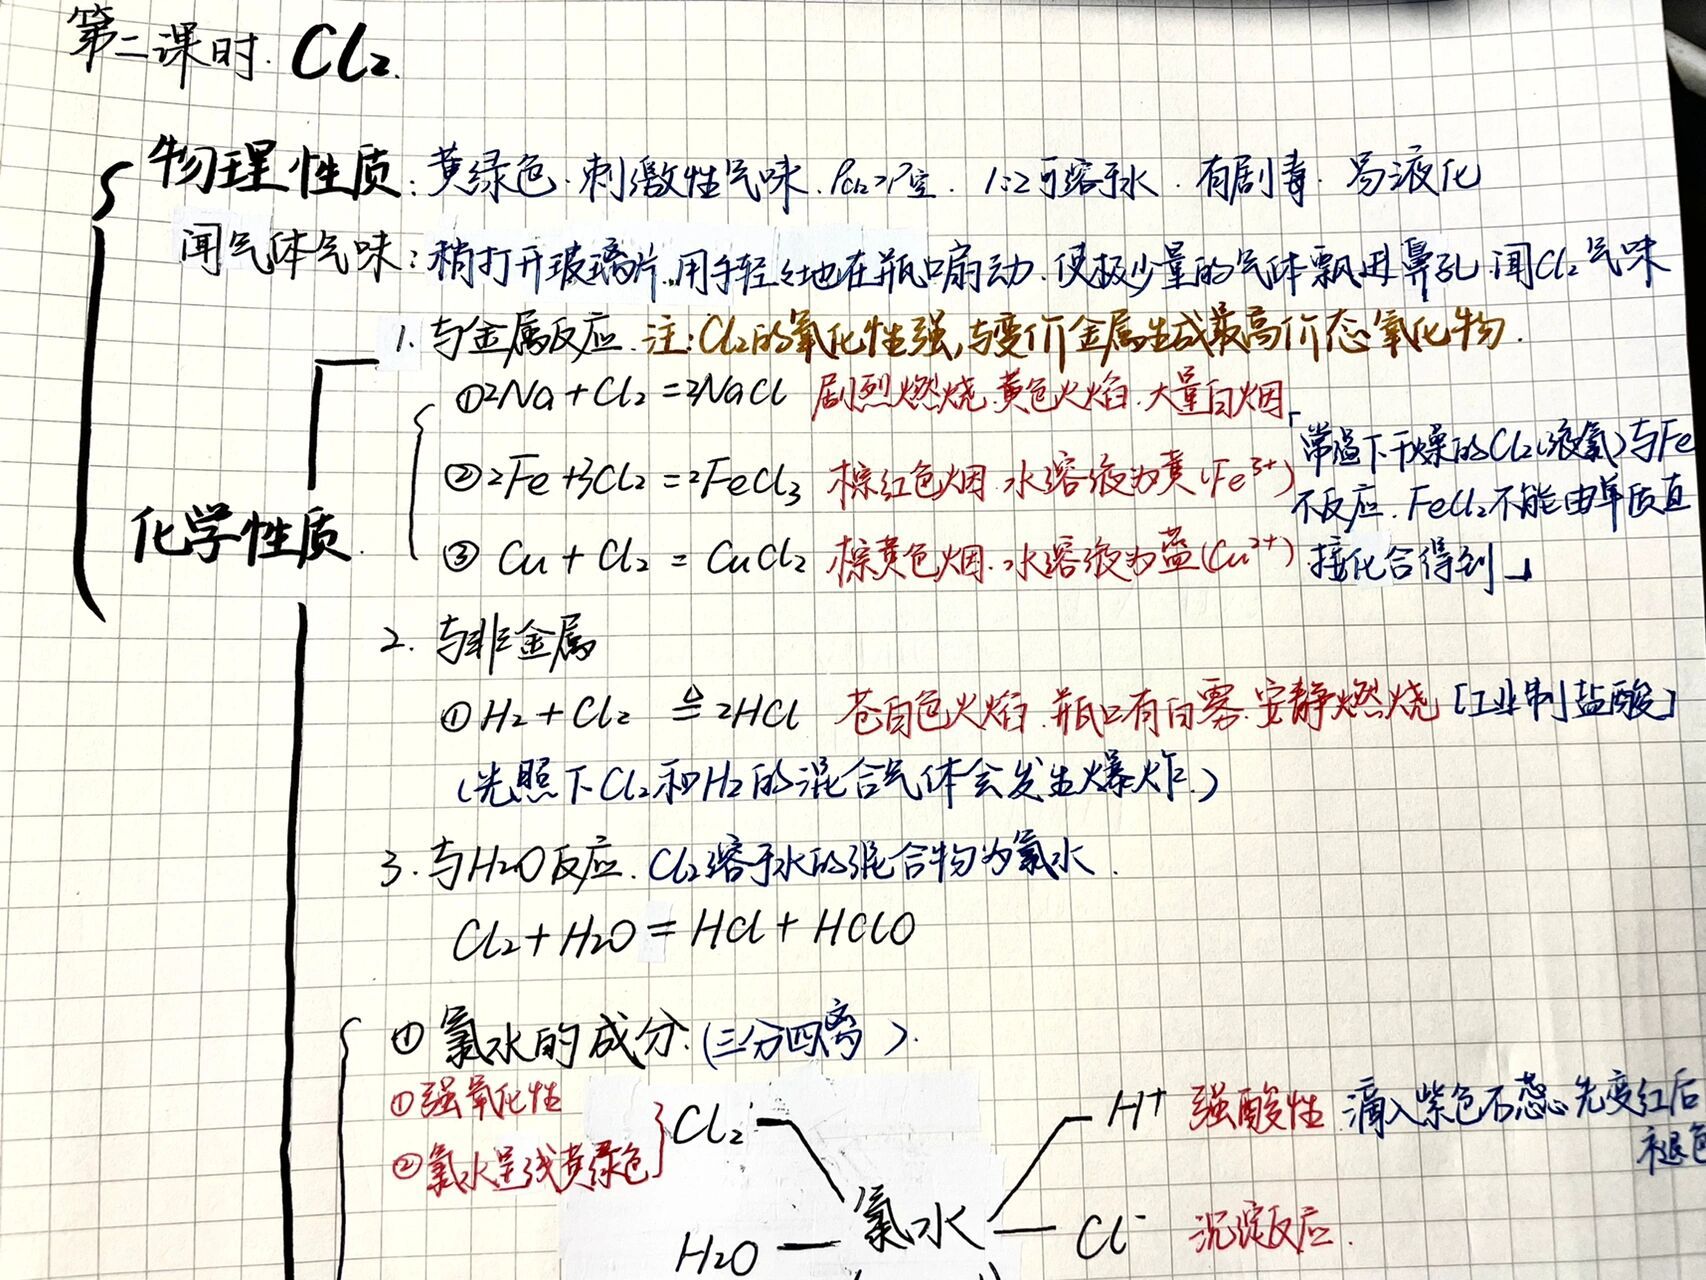 第二课时. Cl₂.
物理性质: 黄绿色. 刺激性气味. ρCl₂>ρ空. 1:2可溶于水. 有剧毒. 易液化
闻气体气味: 稍打开玻璃片. 用手轻々地在瓶口扇动. 使极少量的气体飘进鼻孔. 闻Cl₂气味
1. 与金属反应. 注: Cl₂的氧化性强,与变价金属生成最高价态氧化物.
①2Na+Cl₂=2NaCl 剧烈燃烧. 黄色火焰. 大量白烟.
②2Fe+3Cl₂=2FeCl₃ 棕红色烟. 水溶液为黄(Fe³⁺)
「常温下干燥的Cl₂(液氯)与Fe
不反应. FeCl₂不能由单质直
接化合得到」
化学性质.
③ Cu+Cl₂=CuCl₂ 棕黄色烟. 水溶液为蓝(Cu²⁺)
2. 与非金属
①H₂+Cl₂ ≜ 2HCl 苍白色火焰. 瓶口有白雾. 安静燃烧 [工业制盐酸]
(光照下Cl₂和H₂的混合气体会发生爆炸.)
3. 与H₂O反应. Cl₂溶于水的混合物为氯水.
Cl₂+H₂O=HCl+HClO
① 氯水的成分. (三分四离).
①强氧化性
②氯水呈浅黄绿色
Cl₂
H⁺ 强酸性 滴入紫色石蕊. 先变红后
褪色
氯水
H₂O
Cl⁻ 沉淀反应.